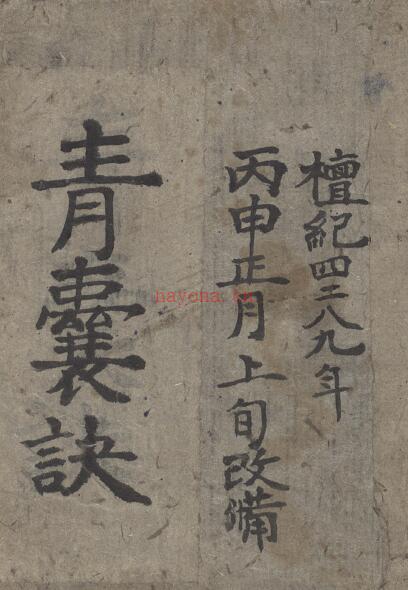 檀紀四二八九年
丙申正月上旬改備
青囊訣